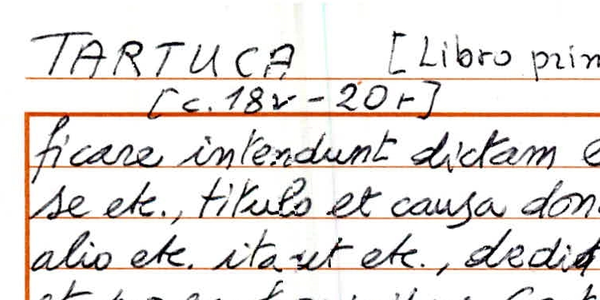 TARTUCA [Libro prim
[c. 18v - 20r]
ficare intendunt dictam e
se etc., titulo et causa don
alio etc. ita ut etc., dedit
et